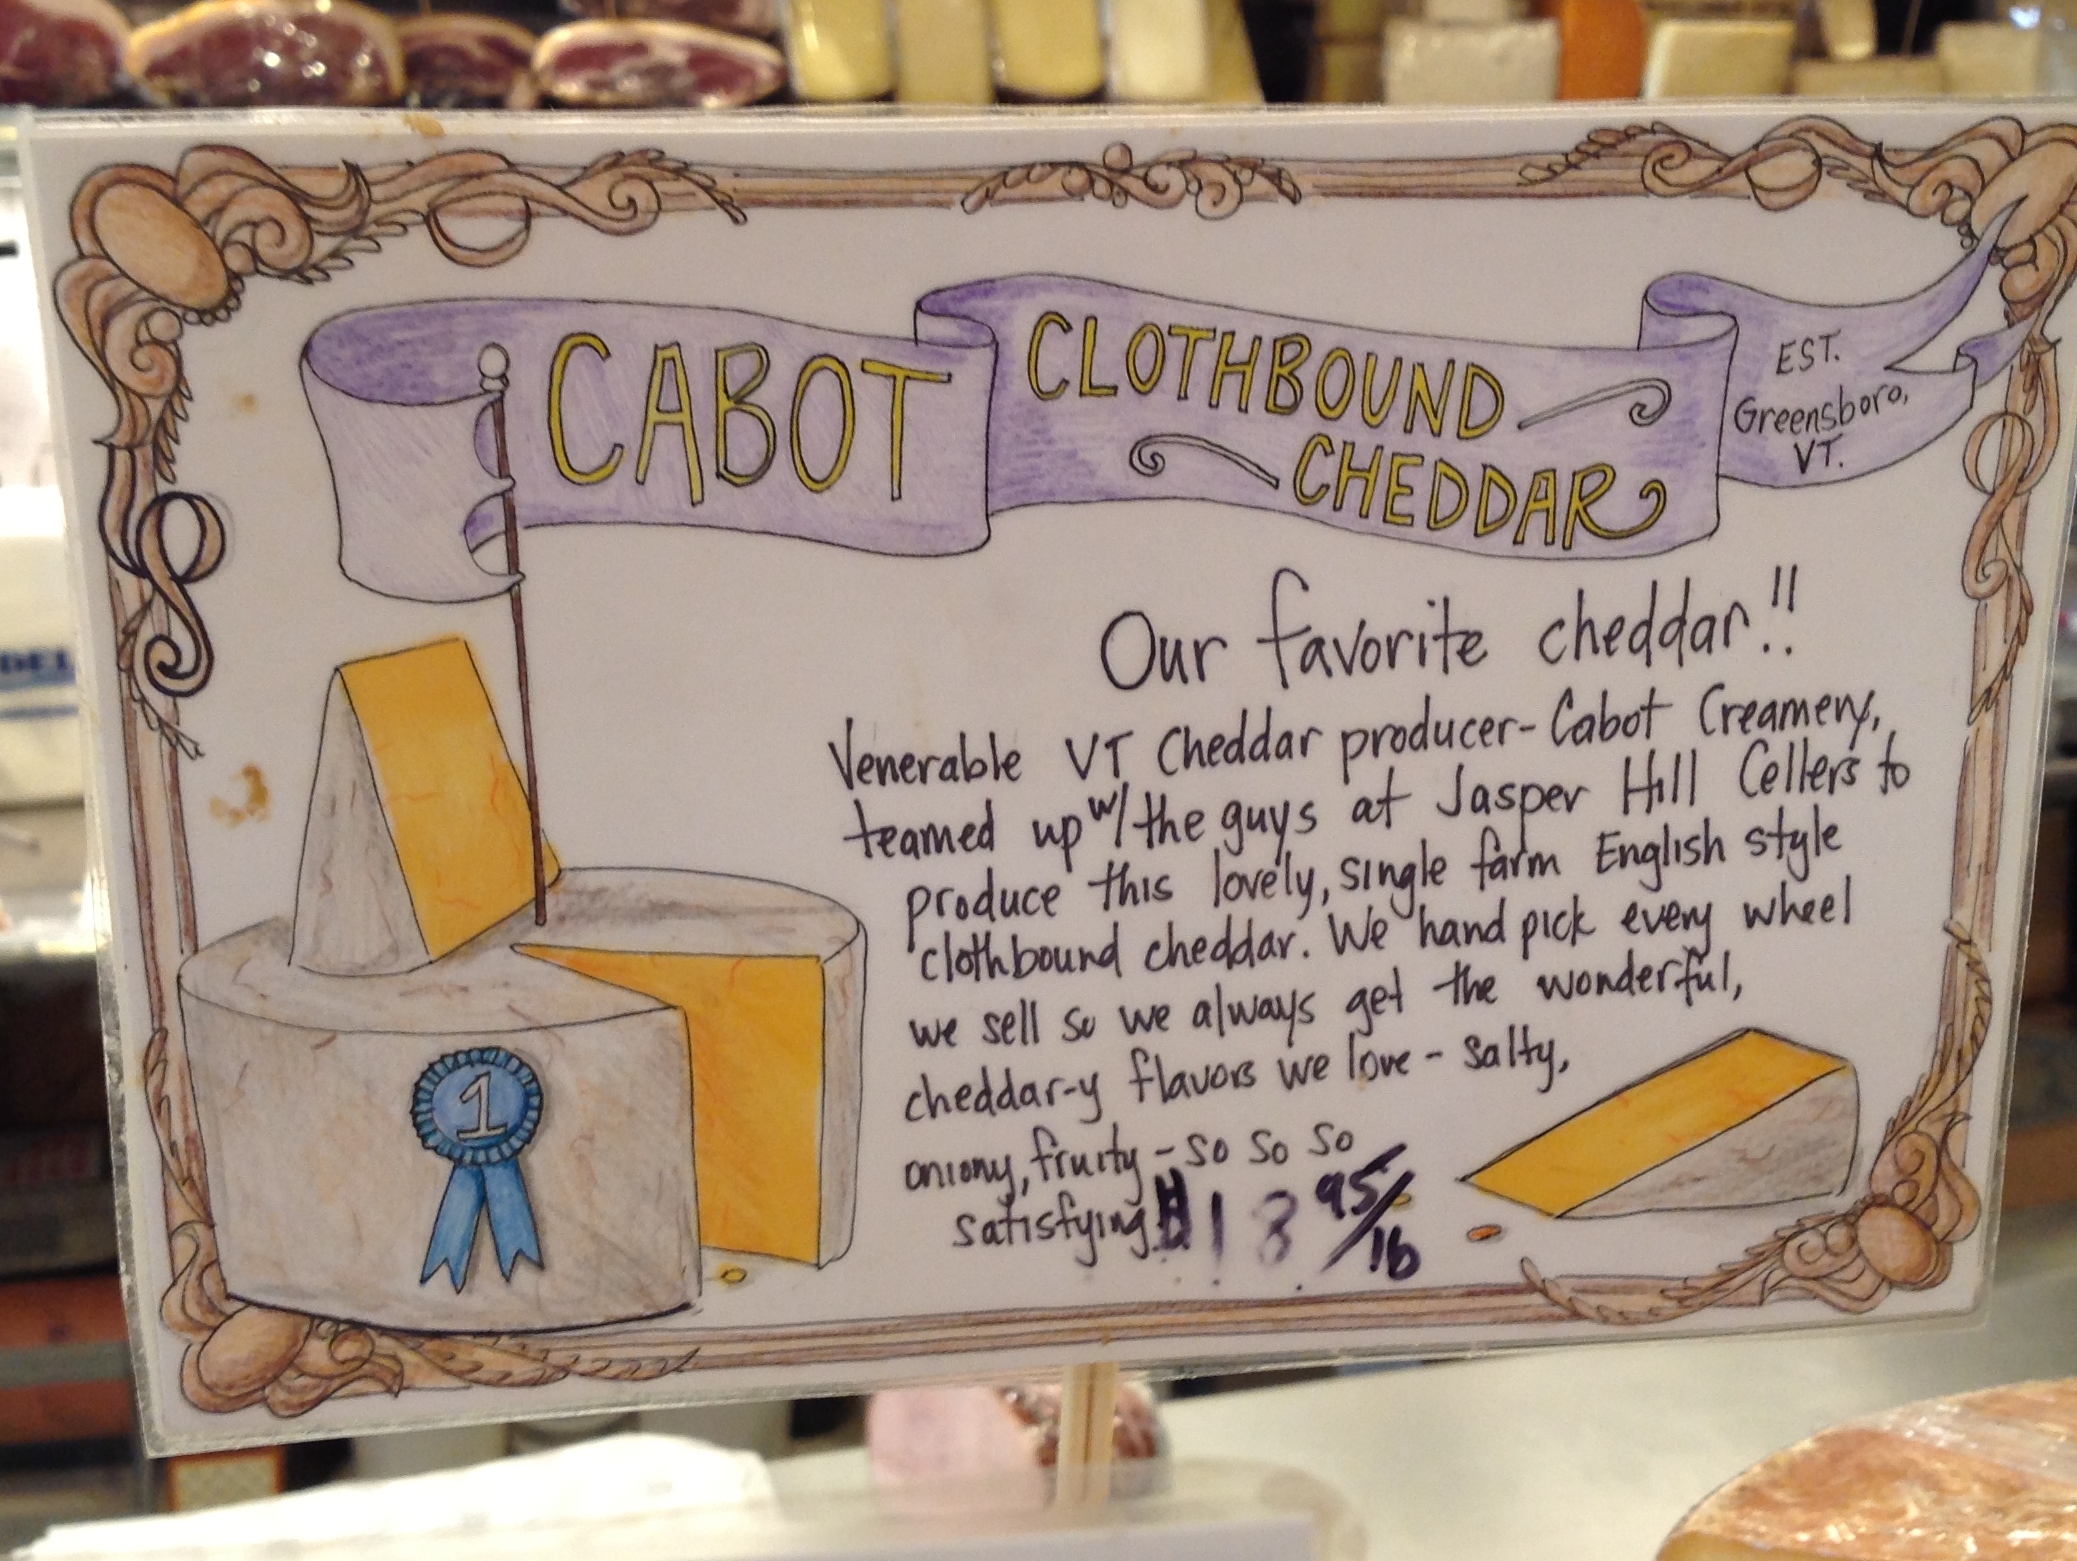 CABOT
CLOTHBOUND
CHEDDAR
EST.
Greensboro,
VT.
Our favorite cheddar!!
Venerable VT Cheddar producer- Cabot Creamery,
teamed up w/ the guys at Jasper Hill Cellers to
produce this lovely, single farm English style
clothbound cheddar. We hand pick every wheel
we sell so we always get the wonderful,
cheddar-y flavors we love - salty,
oniony, fruity - so so so
satisfying! $18 95/lb
1
DEL